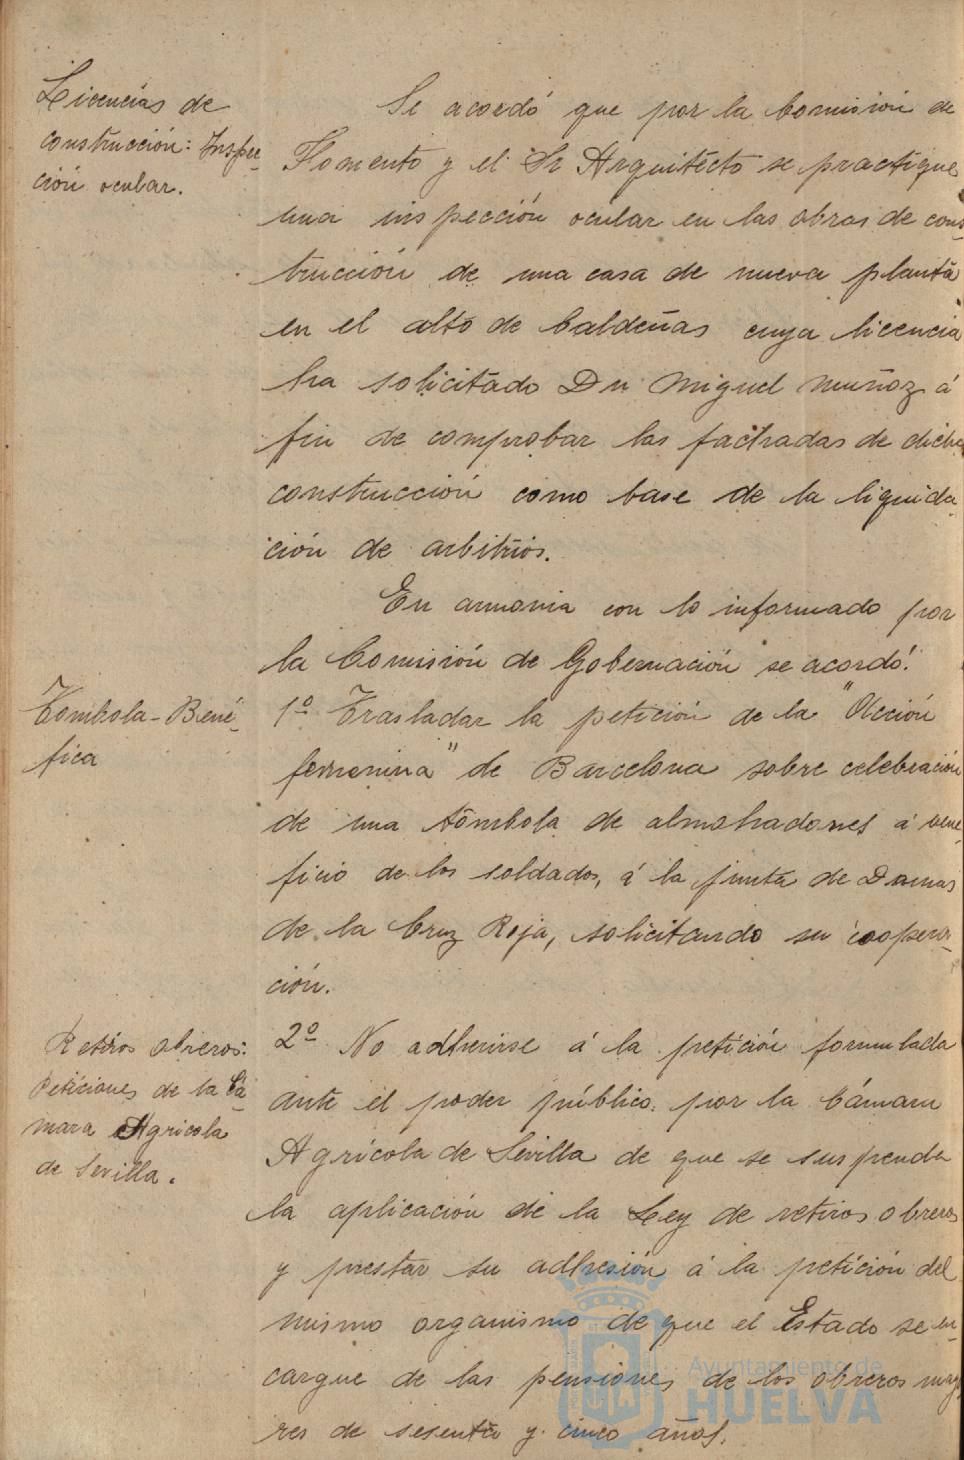 Licencias de
construcción: Inspec-
ción ocular.
Se acordó que por la Comisión de
Fomento y el Sr Arquitecto se practique
una inspección ocular en las obras de cons-
trucción de una casa de nueva planta
en el alto de Caldeñas cuya licencia
ha solicitado Dn Miguel Muñoz á
fin de comprobar las fachadas de dicha
construcción como base de la liquida-
ción de arbitrios.
En armonia con lo informado por
la Comisión de Gobernación se acordó:
Tómbola-Bené-
fica
1º Trasladar la petición de la "Acción
femenina" de Barcelona sobre celebración
de una tómbola de almohadones á bene-
ficio de los soldados, á la junta de Damas
de la Cruz Roja, solicitando su coopera-
ción.
Retiros obreros:
Peticiones de la Cá-
mara Agricola
de Sevilla.
2º No adherirse á la petición formulada
ante el poder público por la Cámara
Agrícola de Sevilla de que se suspenda
la aplicación de la Ley de retiros obreros
y prestar su adhesión á la petición del
mismo organismo de que el Estado se en-
cargue de las pensiones de los obreros mayo-
res de sesenta y cinco años.
Ayuntamiento de
HUELVA